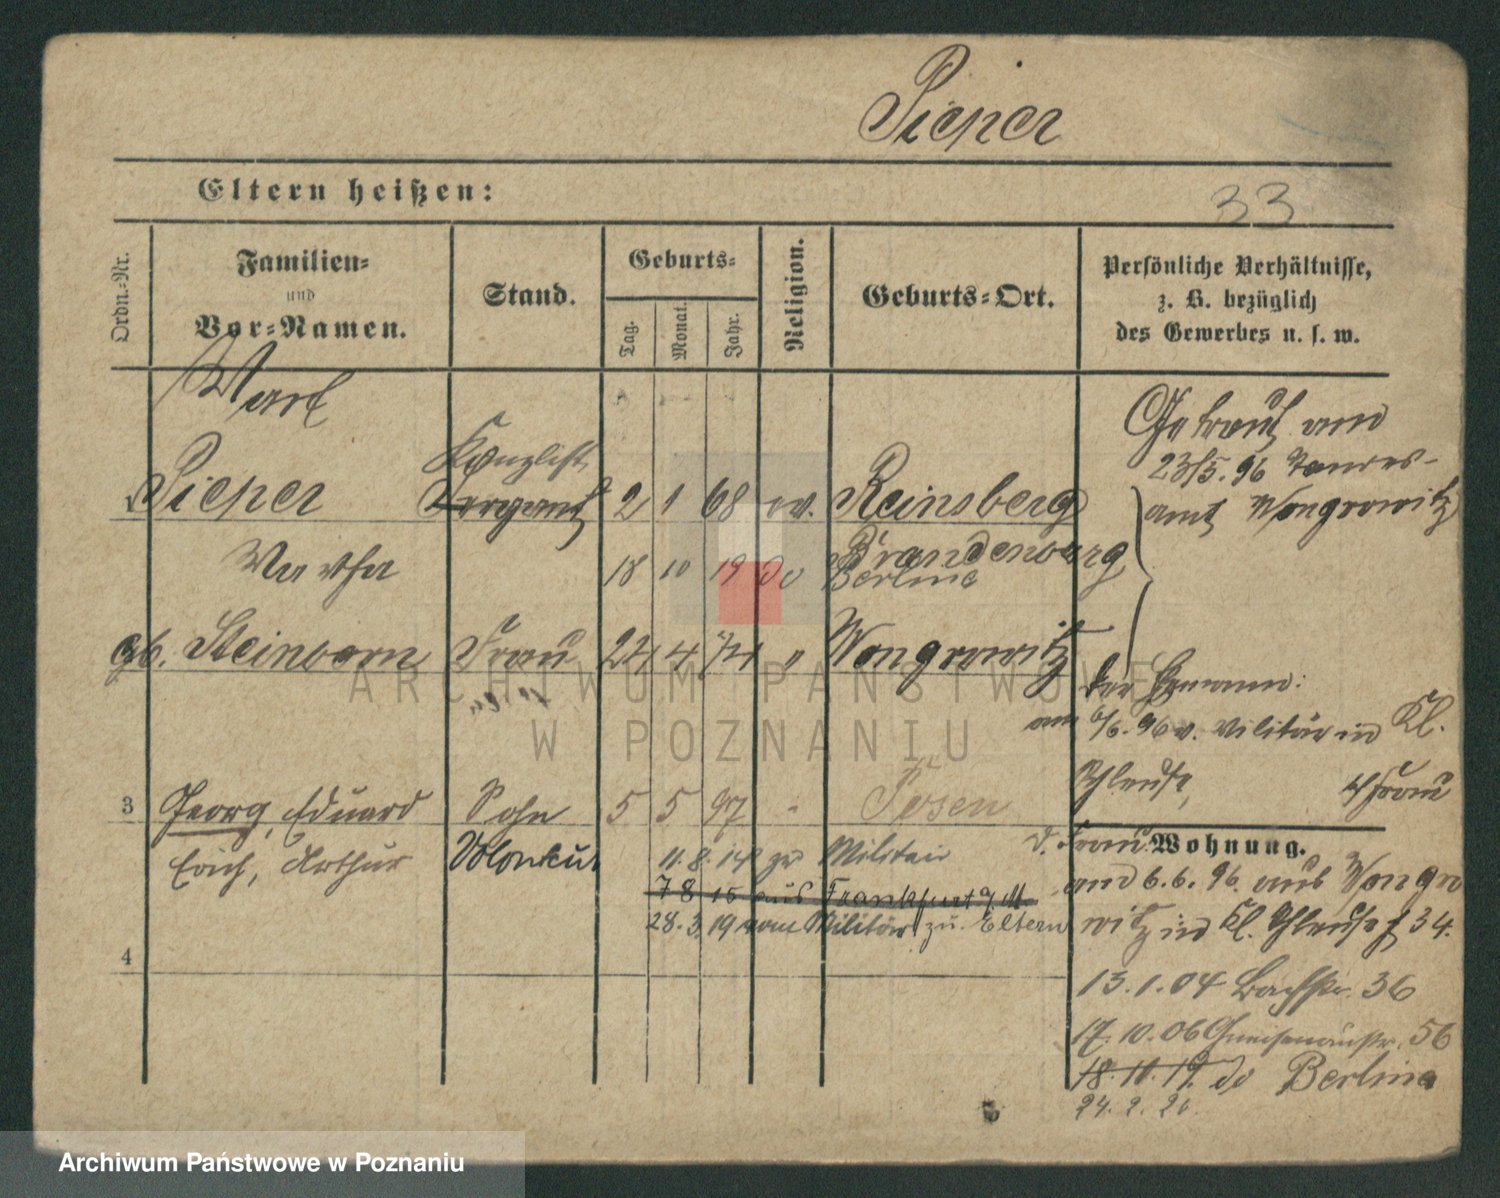 Pieper
Eltern heißen:
33
Ordn.-Nr.
Familien-
und
Vor-Namen.
Stand.
Geburts-
Tag.
Monat.
Jahr.
Religion.
Geburts-Ort.
Persönliche Verhältnisse,
z. B. bezüglich
des Gewerbes u. s. w.
Karl
Kanzlist
Pieper
Sergeant
2 1 68 ev. Reinsberg
Brandenburg
Getraut am
23/5. 96 Standes-
amt Wongrowitz
Martha
18 10 19 do Berlin
gb. Steinborn Frau 24 4 74 " Wongrowitz
Der Ehemann:
am 6/6. 96 v. Militär in Kl.
Schleuse,
3 Georg, Eduard Sohn 5 5 97 Posen
Erich, Arthur
11. 8. 14 zu Militair
7 8 15 aus Frankfurt a/M.
28. 3. 19 vom Militär zu Eltern
4
d. Frau
Wohnung.
am 6. 6. 96. aus Wongro
witz in Kl. Schleuse 34.
13. 1. 04 Bachstr. 36
17. 10. 06 Gneisenaustr. 56
18. 10. 19. do Berlin
24. 2. 20
ARCHIWUM PAŃSTWOWE
W POZNANIU
Archiwum Państwowe w Poznaniu